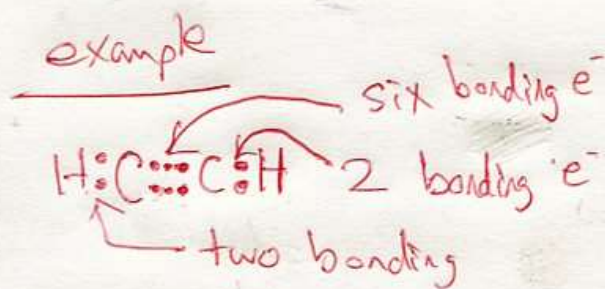 example
six bonding e⁻
H:C:::C:H 2 bonding e⁻
two bonding